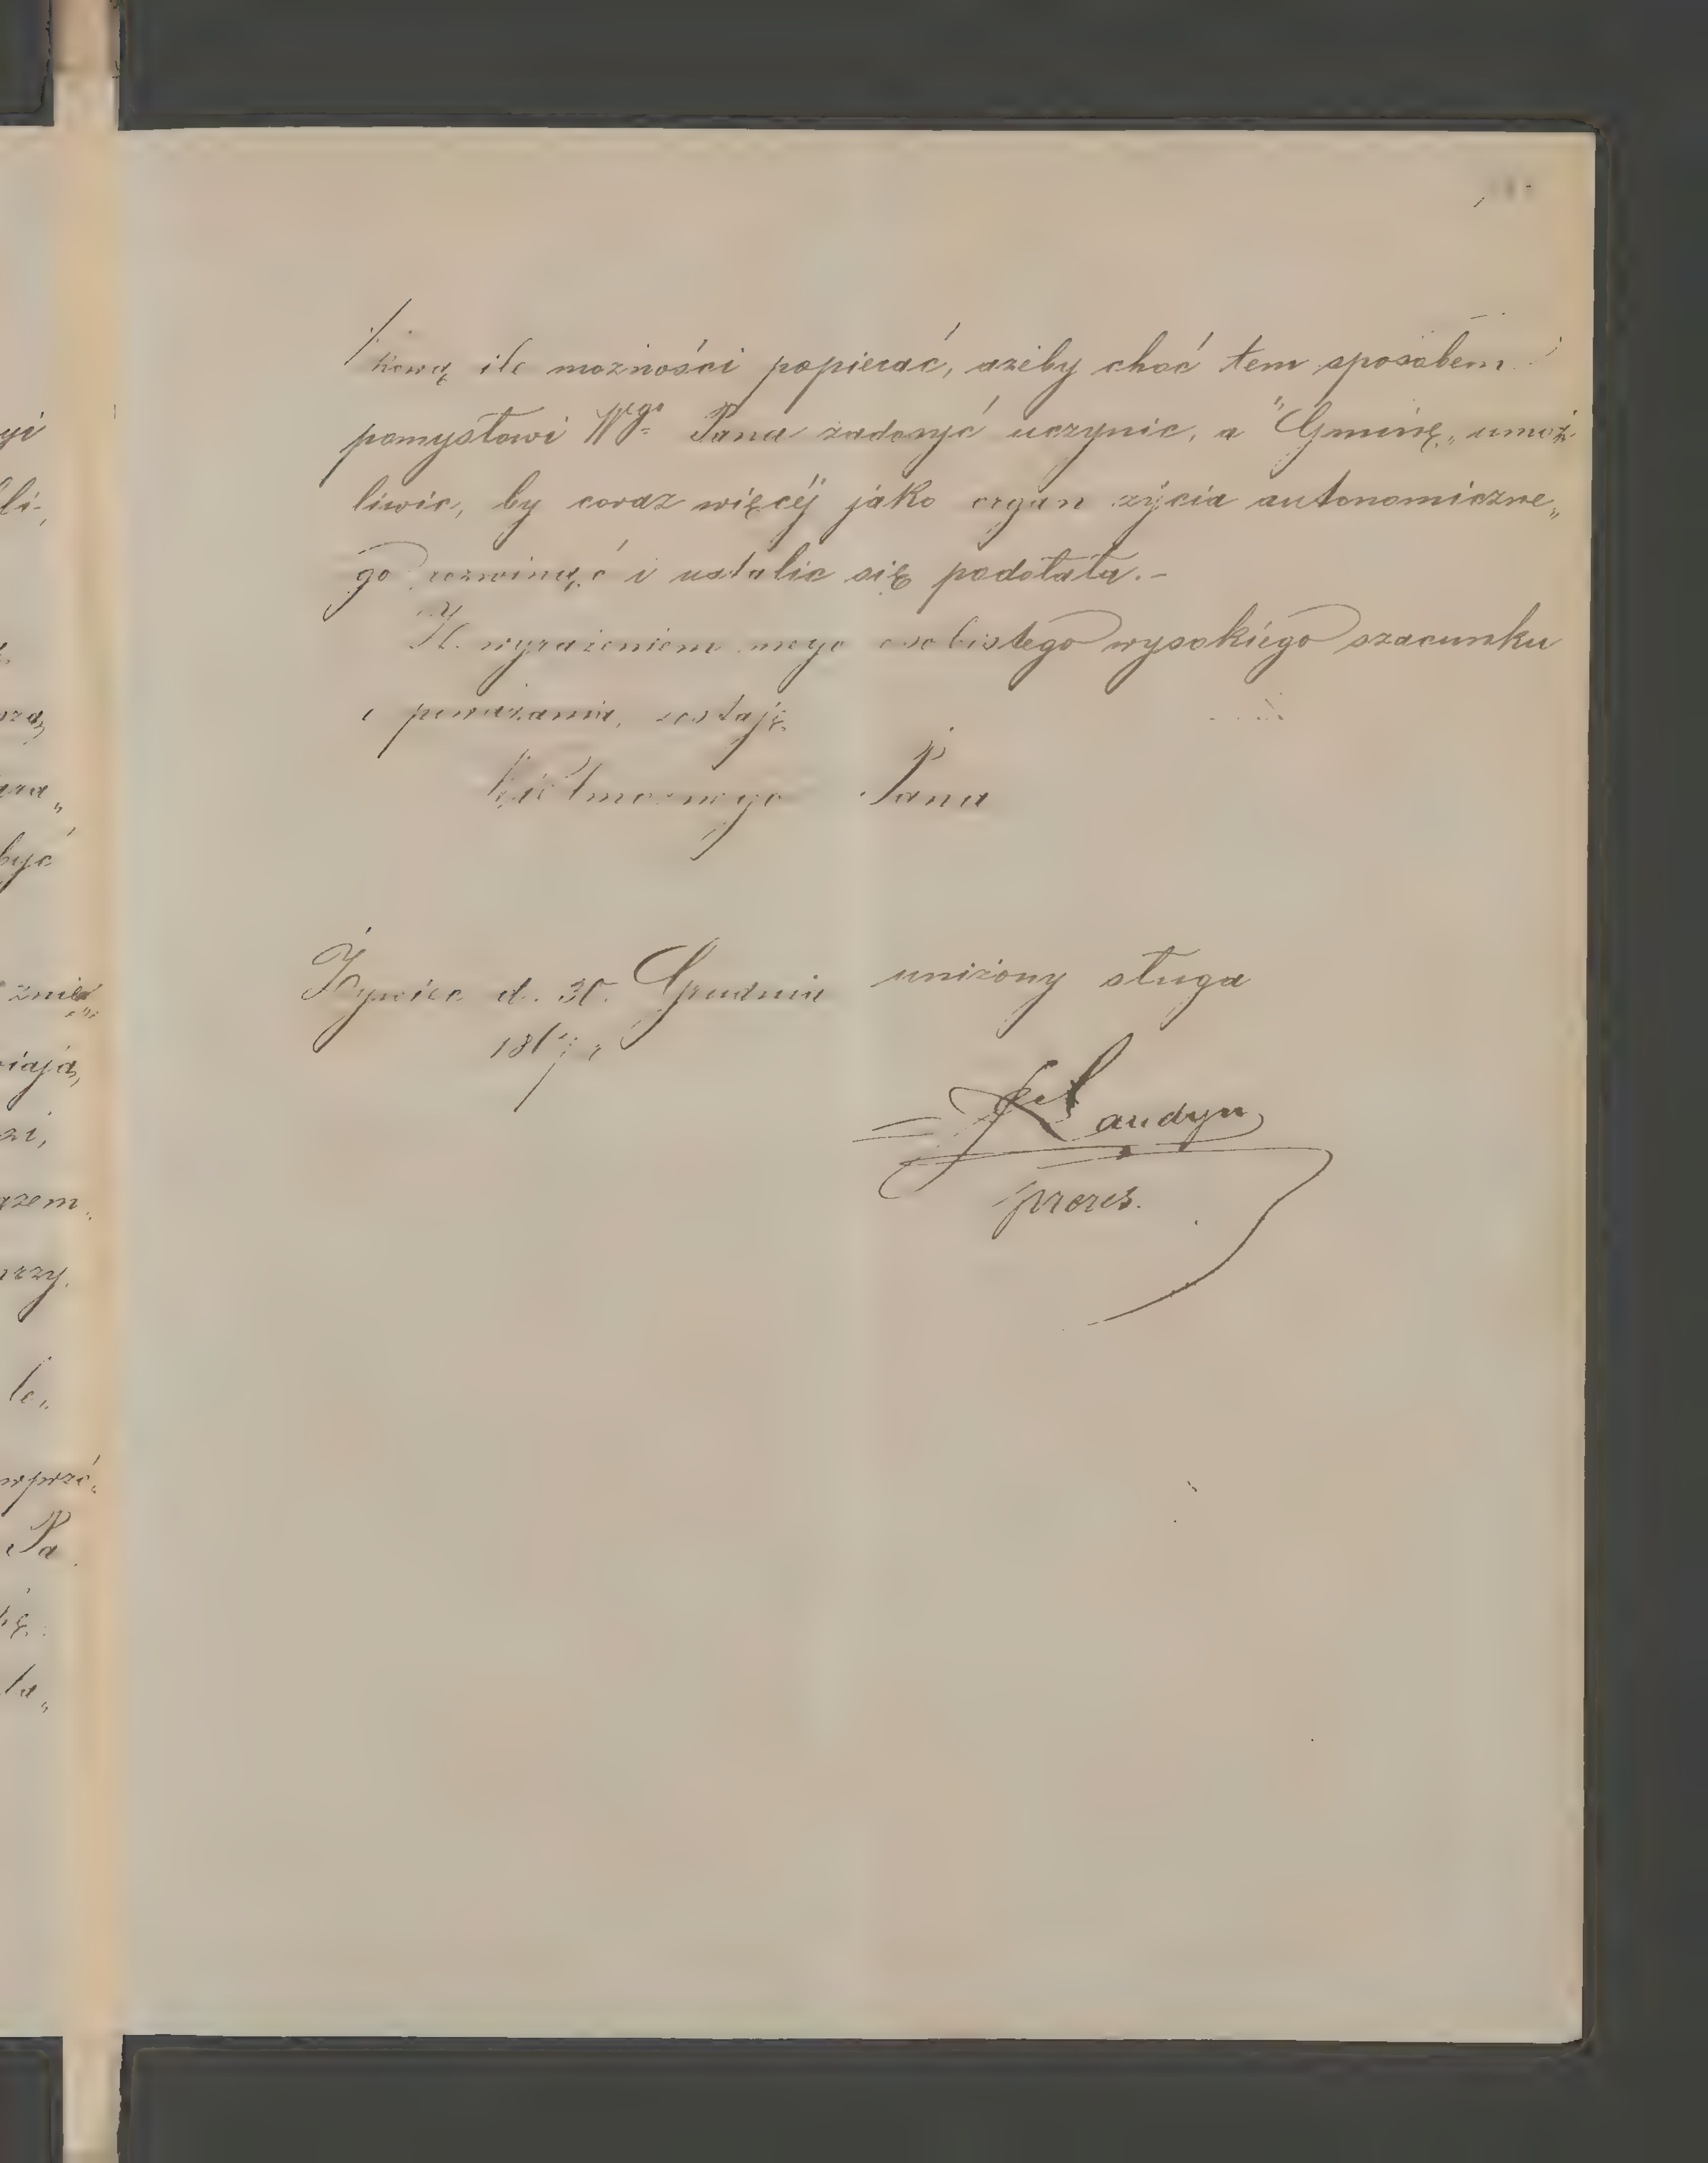 kową ile możności popierać, ażeby choć tem sposobem
pomysłowi Wgo Pana zadosyć uczynić, a "Gminę" umoż„
liwić, by coraz więcéj jako organ życia autonomiczne„
go rozwinąć i ustalić się podołała.-
Z wyrażeniem mego osobistego wysokiego szacunku
i poważania, zostaję
Wielmożnego Pana
Żywiec d. 30. Grudnia uniżony sługa
Laudyn
prezes.